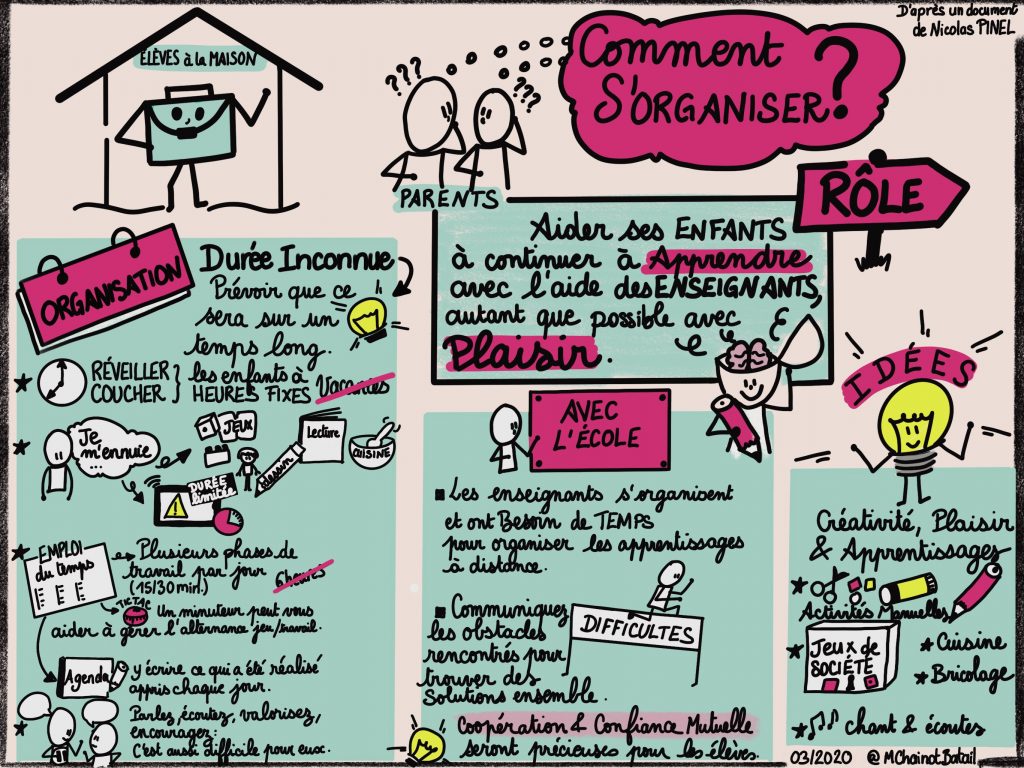 D'après un document
de Nicolas PINEL
ÉLÈVES à la MAISON
Comment
S'ORGANISER?
???
???
PARENTS
RÔLE
Aider ses ENFANTS
à continuer à Apprendre
avec l'aide des ENSEIGNANTS,
autant que possible avec
Plaisir.
ORGANISATION
Durée Inconnue
Prévoir que ce
sera sur un
temps long.
RÉVEILLER
COUCHER
les enfants à
HEURES FIXES
Vacances
Je
m'ennuie
JEUX
Lecture
dessin
CUISINE
DURÉE
limitée
EMPLOI
du temps
Plusieurs phases de
travail par jour
(15/30 min.)
6 heures
TIC TAC
Un minuteur peut vous
aider à gérer l'alternance jeu/travail.
Agenda
y écrire ce qui a été réalisé
appris chaque jour.
Parlez, écoutez, valorisez,
encouragez:
C'est aussi difficile pour eux.
AVEC
L'ÉCOLE
Les enseignants s'organisent
et ont Besoin de TEMPS
pour organiser les apprentissages
à distance.
Communiquez
les obstacles
rencontrés pour
trouver des
Solutions ensemble.
DIFFICULTES
Coopération & Confiance Mutuelle
seront précieuses pour les élèves.
IDÉES
Créativité, Plaisir
& Apprentissages
Activités Manuelles
Jeux de
SOCIÉTÉ
Cuisine
Bricolage
chant & écoutes
03/2020 @MChainotBatail